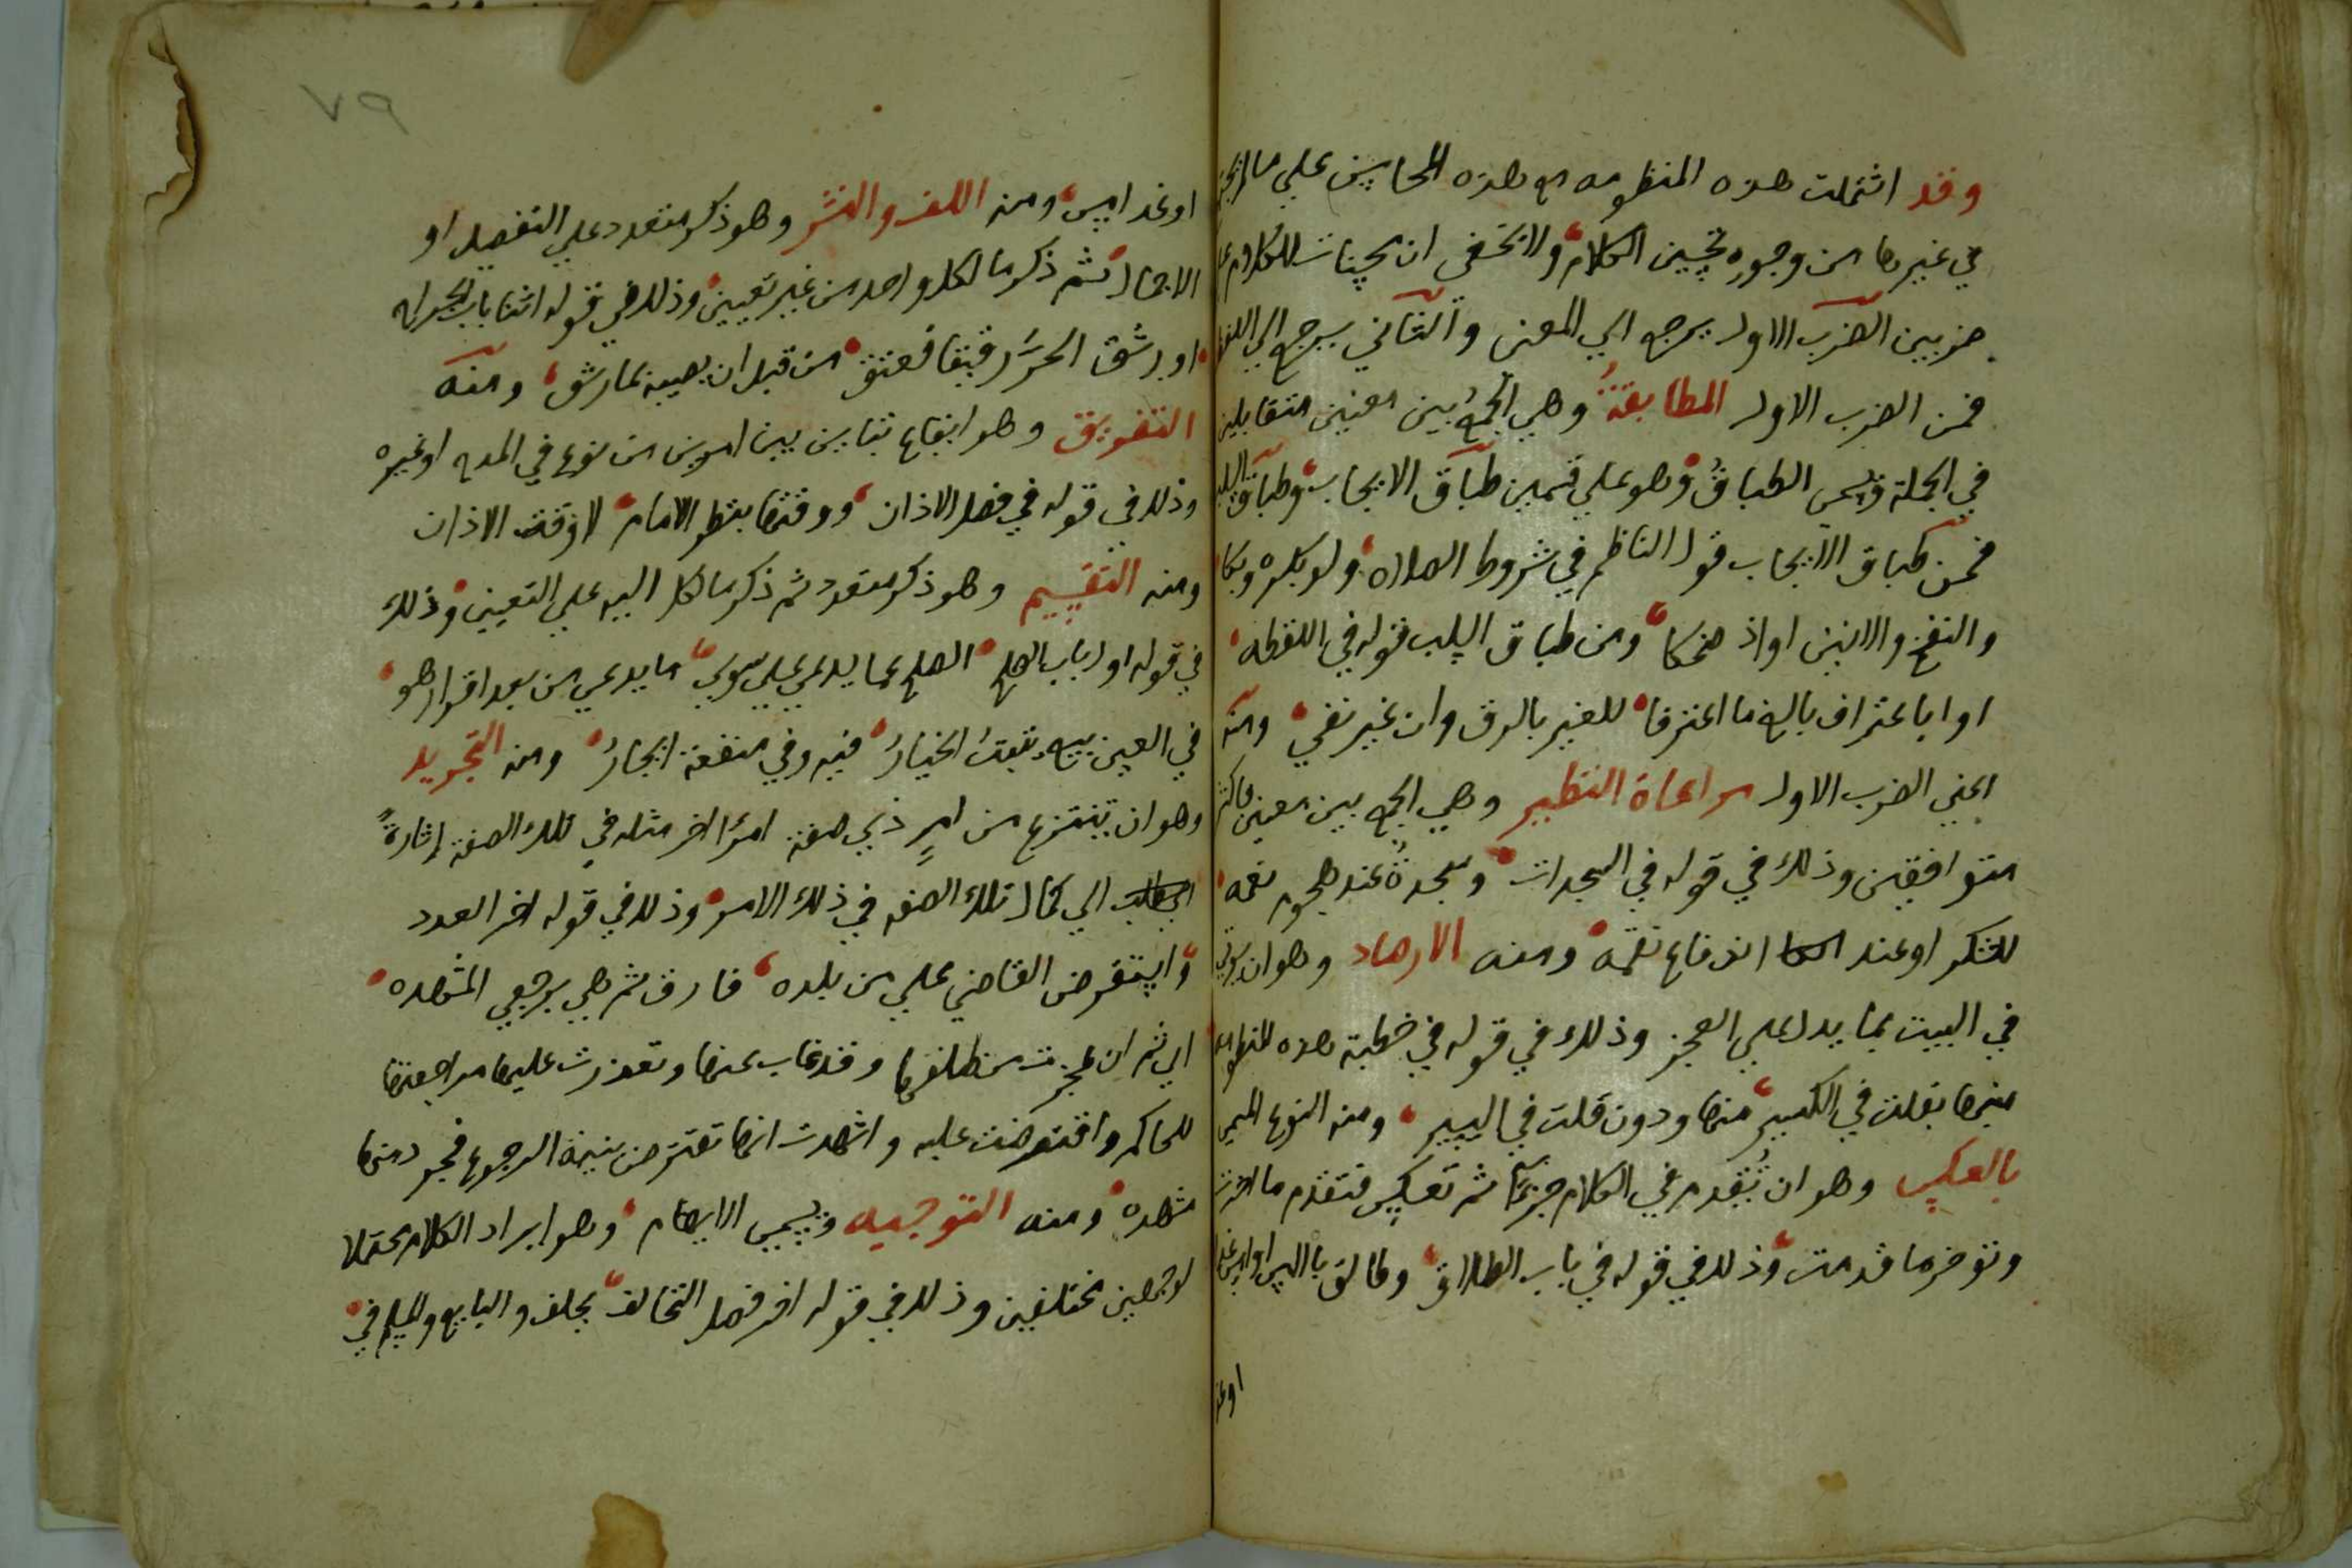 وقد اشتملت هذه المنظومه مع هذه المحاسن على ما
في غيرها من وجوه تحسين الكلام ولا تخفى ان محسنات الكلام
ضربين الضرب الاول يرجع الي المعنى والثاني يرجع الي اللفظ
فمن الضرب الاول المطابقة وهي الجمع بين معنيين متقابلين
في الجملة ويسمى الطباق وهو على قسمين طباق الايجاب وطباق السلب
فمن طباق الايجاب قول الناظم في شروط الصلاه ولو بكره وبكا
والنفخ والانين او اذ ضحكا ومن طباق السلب قوله في اللقطه
او اباعتراف بالغ ما اعترفا للغير بالرق وان غير نفي ومنه
اعني الضرب الاول مراعاة النظير وهي الجمع بين معنيين فاكثر
متوافقين وذلك في قوله في السجدات وسجدة عند هجوم نعمه
للشكر او عند اندفاع نقمه ومنه الارصاد وهو ان يوتى
في البيت بما يدل على العجز وذلك في قوله في خطبة هذه المنظومه
ميزها بقلت في الكسير منها ودون قلت في اليسير ومنه النوع المسمى
بالعكس وهو ان تقدم في الكلام جزءا ثم تعكس فتقدم ما اخرت
وتوخر ما قدمت وذلك في قوله في باب الطلاق وطالق باليس او امس غدا
او غد
٧٩
او غد امس ومنه اللف والنشر وهو ذكر متعدد على التفصيل او
الاجمال ثم ذكر ما لكل واحد من غير تعيين وذلك في قوله اثنا باب الجراح
او رشق الحر رقيقا فعتق من قبل ان يصيبه بما رشق ومنه
التفريق وهو ايقاع تباين بين امرين من نوع في المدح او غيره
وذلك في قوله في فصل الاذان ووقتها بنظر الامام لا وقت الاذان
ومنه التقسيم وهو ذكر متعدد ثم ذكر ما لكل اليه على التعيين وذلك
في قوله اول باب الصلح الصلح عما يدعي على سوي ما يدعي من بعد اقرار هو
في العين بيع يثبت الخيار فيه وفي منفعة ايجار ومنه التجريد
وهو ان تنتزع من امر ذي صفة امرا اخر مثله في تلك الصفة إشارة
الي كمال تلك الصفه في ذلك الامر وذلك في قوله اخر العدد
واستقرض القاضي علي من بلده فارق ثم هي برجعي المشهده
اي ثم ان عجزت من طلقها وقد غاب عنها وتعذرت عليها مراجعتها
للحاكم واقترضت عليه واشهدت انها تقترض بنية الرجوع فجرد منها
مشهده ومنه التوجيه ويسمى الايهام وهو ايراد الكلام محتملا
لوجهين مختلفين وذلك في قوله اخر فصل التخالف يحلف والبايع والمسلم في